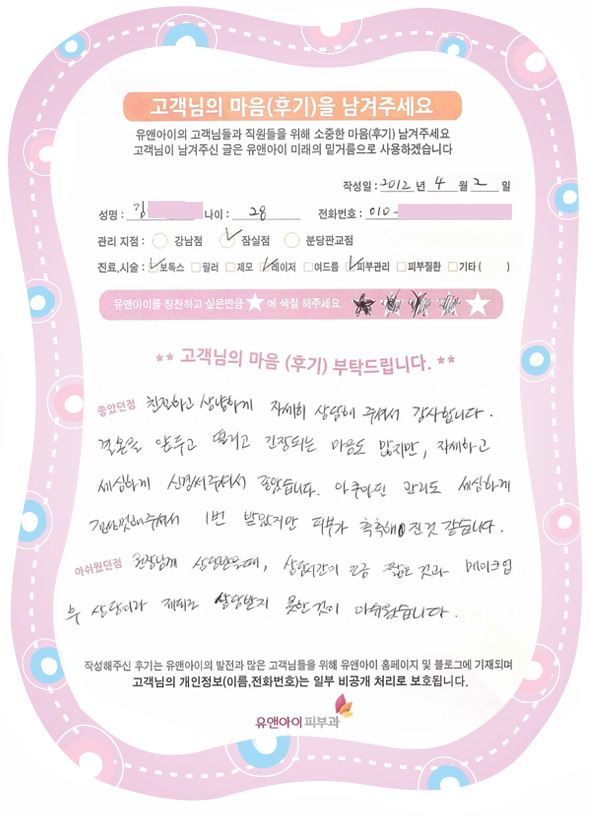 고객님의 마음(후기)을 남겨주세요
유앤아이의 고객님들과 직원들을 위해 소중한 마음(후기) 남겨주세요
고객님이 남겨주신 글은 유앤아이 미래의 밑거름으로 사용하겠습니다
작성일 : 2012 년 4 월 2 일
성명 : 김 나이 : 28 전화번호 : 010-
관리 지점 : 강남점 잠실점 분당판교점
진료,시술 : 보톡스 필러 제모 레이저 여드름 피부관리 피부질환 기타 ( )
유앤아이를 칭찬하고 싶은만큼 ★ 에 색칠 해주세요. ★★★★★
** 고객님의 마음 (후기) 부탁드립니다. **
좋았던점 친절하고 상냥하게 자세히 상담해 주셔서 감사합니다.
결혼을 앞두고 떨리고 긴장되는 마음도 많지만, 자세하고
세심하게 신경써주셔서 좋았습니다. 아쿠아필 관리도 세심하게
해주셔서 1번 받았지만 피부가 촉촉해진것 같습니다.
아쉬웠던점 원장님께 상담받을때, 상담시간이 조금 짧은 것과 메이크업
후 상담이라 제대로 상담받지 못한것이 아쉬웠습니다.
작성해주신 후기는 유앤아이의 발전과 많은 고객님들을 위해 유앤아이 홈페이지 및 블로그에 기재되며
고객님의 개인정보(이름,전화번호)는 일부 비공개 처리로 보호됩니다.
유앤아이피부과